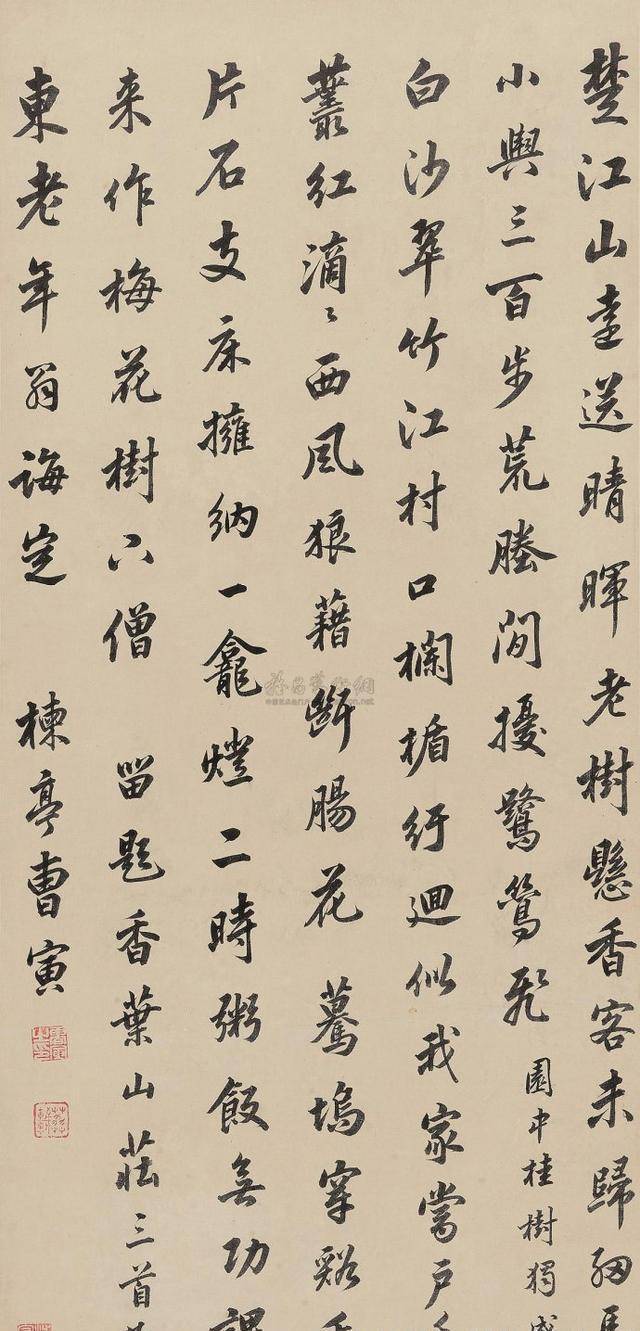 楚江山童送晴暉老樹懸香客未歸細馬
小輿三百步荒塍閒擾鷺鶿飛 園中桂樹獨盛
白沙翠竹江村口欄楯紆迴似我家當戶
叢紅滴〻西風狼藉斷腸花 驀塢穿谿
片石支床擁納一龕燈二時粥飯無功課
来作梅花樹下僧 留題香葉山莊三首
東老年翁誨定 楝亭曹寅